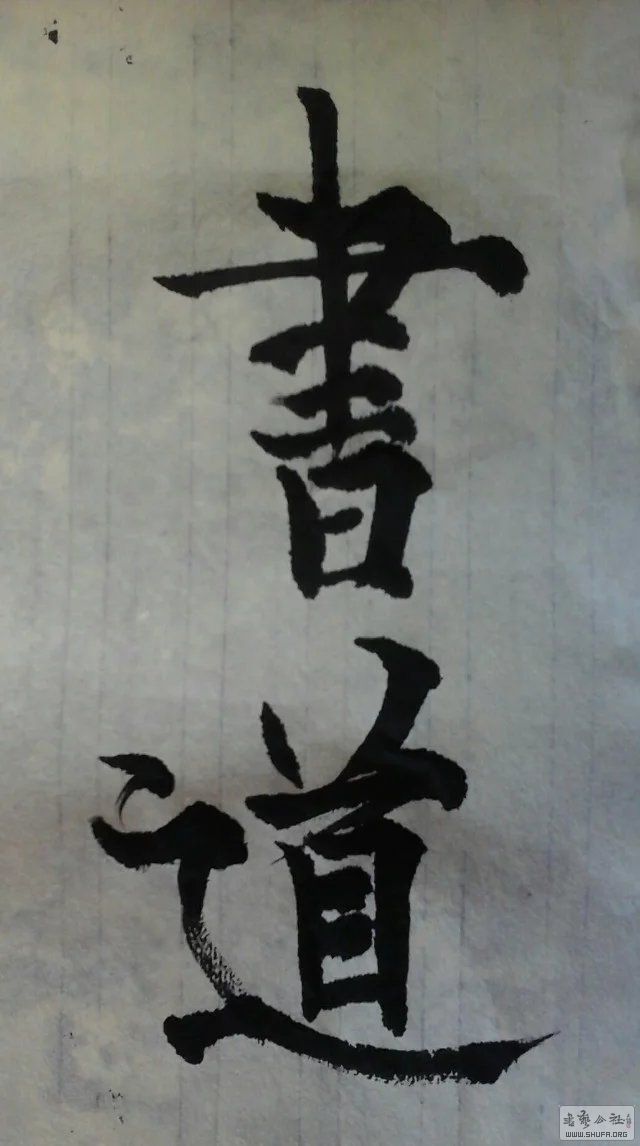 書道
书艺公社
WWW.SHUFA.ORG